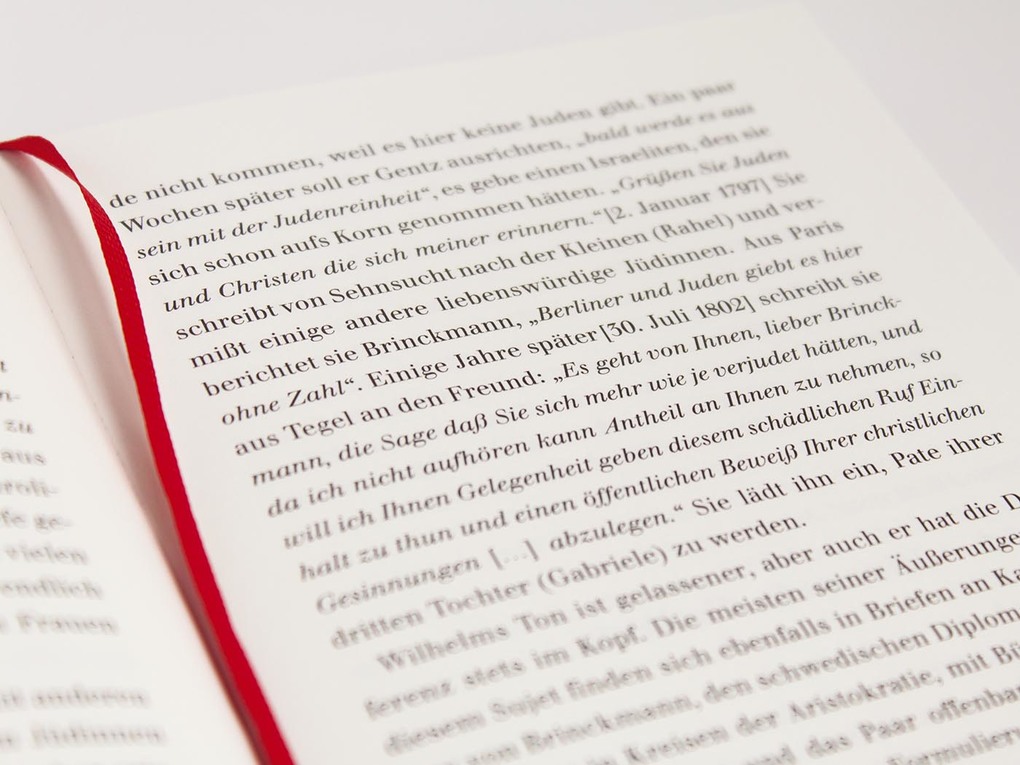 t
n-
zu
aus
roli-
fe ge-
vielen
endlich
e Frauen
anderen
Jüdinnen
de nicht kommen, weil es hier keine Juden gibt. Ein paar
Wochen später soll er Gentz ausrichten, „bald werde es aus
sein mit der Judenreinheit“, es gebe einen Israeliten, den sie
sich schon aufs Korn genommen hätten. „Grüßen Sie Juden
und Christen die sich meiner erinnern.“[2. Januar 1797] Sie
schreibt von Sehnsucht nach der Kleinen (Rahel) und ver-
mißt einige andere liebenswürdige Jüdinnen. Aus Paris
berichtet sie Brinckmann, „Berliner und Juden giebt es hier
ohne Zahl“. Einige Jahre später [30. Juli 1802] schreibt sie
aus Tegel an den Freund: „Es geht von Ihnen, lieber Brinck-
mann, die Sage daß Sie sich mehr wie je verjudet hätten, und
da ich nicht aufhören kann Antheil an Ihnen zu nehmen, so
will ich Ihnen Gelegenheit geben diesem schädlichen Ruf Ein-
halt zu thun und einen öffentlichen Beweiß Ihrer christlichen
Gesinnungen [...] abzulegen.“ Sie lädt ihn ein, Pate ihrer
dritten Tochter (Gabriele) zu werden.
Wilhelms Ton ist gelassener, aber auch er hat die D
ferenz stets im Kopf. Die meisten seiner Äußerunge
diesem Sujet finden sich ebenfalls in Briefen an Ka
von Brinckmann, den schwedischen Diplom
in Kreisen der Aristokratie, mit Bü
und das Paar offenbar
Formulier